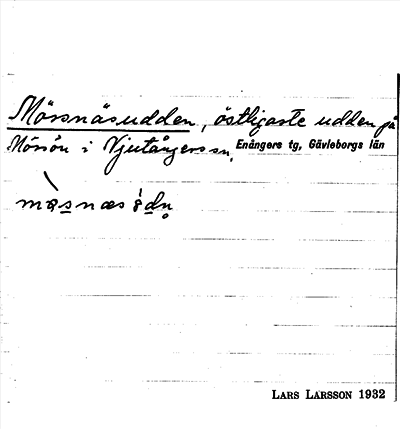 Mörsnäsudden, östligaste udden på
Mörsön i Njutångers sn, Enångers tg, Gävleborgs län
LARS LARSSON 1932